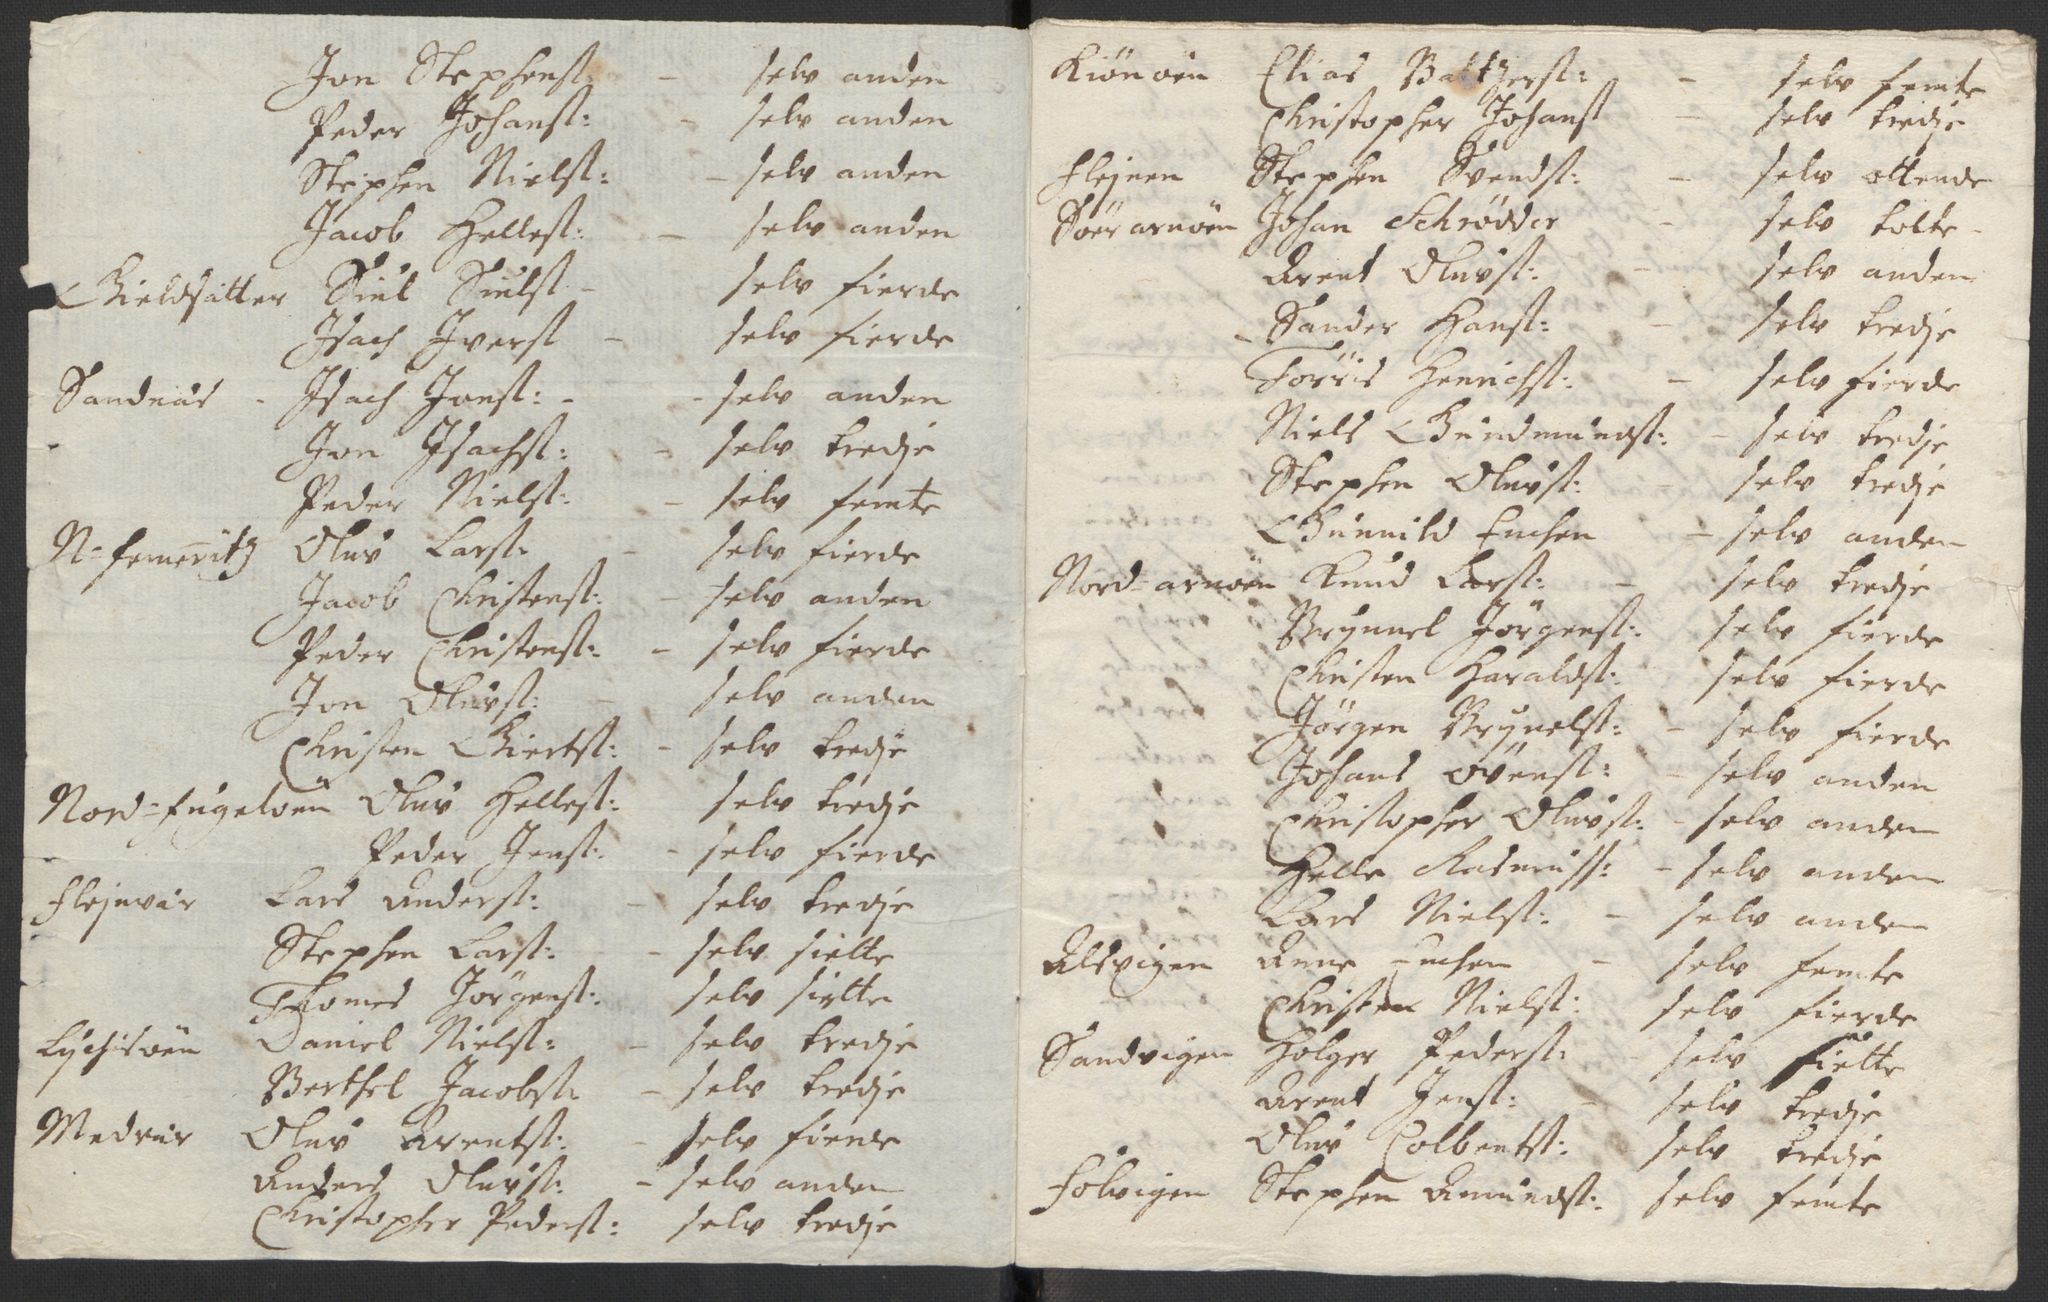 Jon Stephenst: - selv anden
Peder Johanst: - selv anden
Stephen Nielst: - selv anden
Jacob Hellest: - selv anden
Gieldsätter Siul Siulst - selv fierde
Isach Iverst - selv fierde
Sandnäs - Isach Jonst: - selv anden
Jon Isachst: - selv tredje
Peder Nielst: - selv femte
N: femeritz Oluv Larst: - selv fierde
Jacob Christenst: - selv anden
Peder Christenst: - selv fierde
Jon Oluvst: - selv anden
Christen Giertst: - selv tredje
Nord-Engelöen Oluv Hellest: selv tredje
Peder Jenst: - selv fierde
Flejnvär Lars Anderst: - selv tredje
Stephen Larst: - selv sielte
Thomes Jörgenst: selv sielte
Lychisöen Daniel Nielst: - selv tredje
Berthel Jacobst: - selv tredje
Medvär Oluv Arentst: - selv fierde
Anders Oluvst: - selv anden
Christopher Pederst: selv tredje
Kiönöen Elias Baltzerst: - selv femte
Christopher Johanst - selv tredje
Flejnen Stephen Svendst: - selv ottende
Söer arnöen Johan Schrödder - selv tolte
Arent Oluvst: - selv anden
Sander Hanst: - selv tredje
Torris Henrichst: - selv fierde
Niels Gundmundst: - selv tredje
Stephen Oluvst: - selv tredje
Gunnild Enchen - selv anden
Nord-arnöen Knud Larst: - selv tredje
Brynnel Jörgenst: selv fierde
Christen Haraldst: selv fierde
Jörgen Brynelst: - selv fierde
Johans Övenst: - selv anden
Christopher Oluvst: - selv anden
Helle Rasmuss: - selv anden
Lars Nielst: - selv anden
Alsvigen Anne Enchen - selv femte
Christen Nielst: selv fierde
Sandvigen Holger Pederst: selv sielte
Arent Jenst: - selv tredje
Oluv Colbentst: selv tredje
Fölvigen Stephen Amundst: selv femte